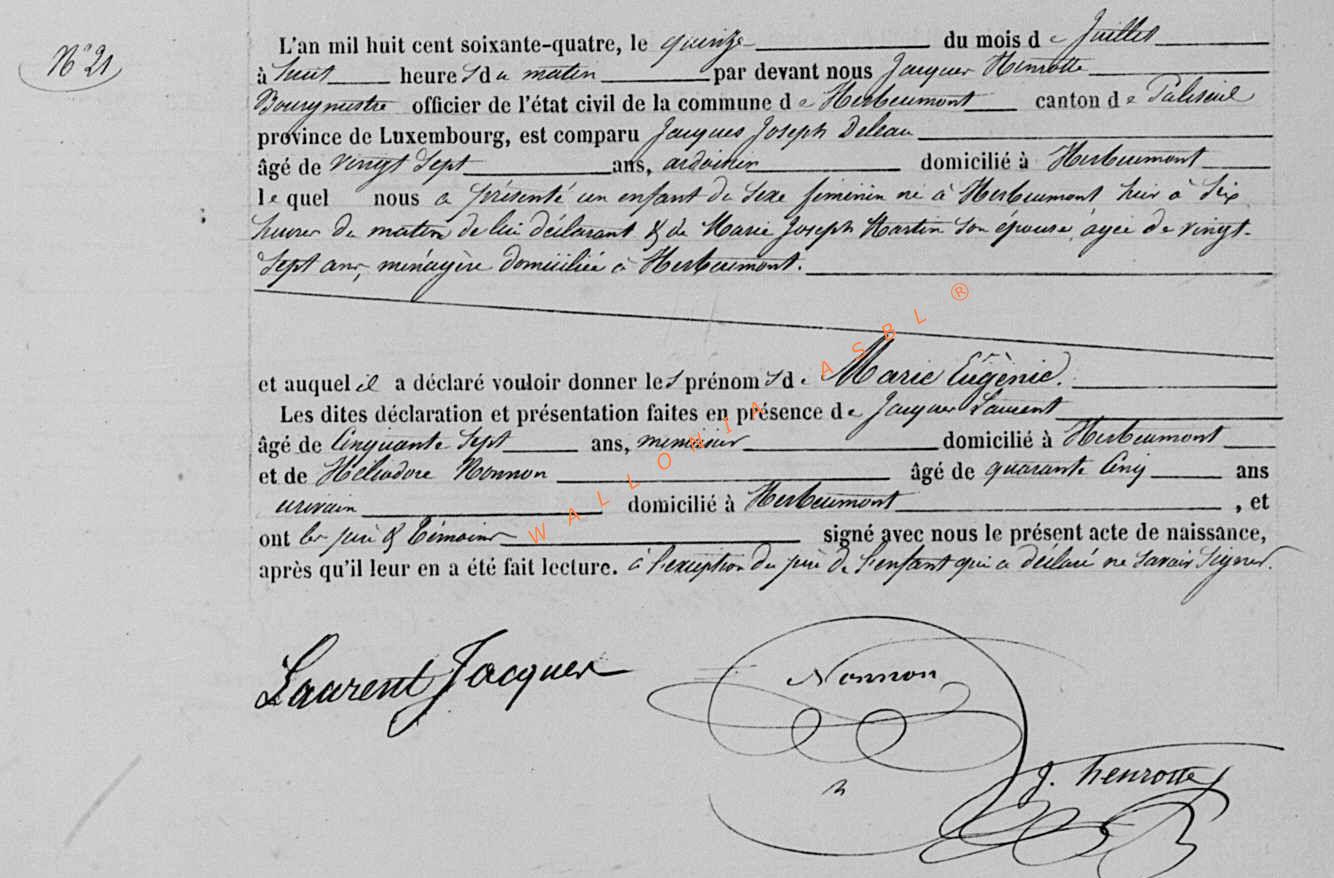 N° 21
L'an mil huit cent soixante-quatre, le quinze du mois de Juillet
à huit heures du matin par devant nous Jacques Henrotte
Bourgmestre officier de l'état civil de la commune de Herbeumont canton de Paliseul
province de Luxembourg, est comparu Jacques Joseph Deleau
âgé de vingt Sept ans, ardoisier domicilié à Herbeumont
lequel nous a présenté un enfant du sexe féminin né à Herbeumont hier à Six
heures du matin de lui déclarant & de Marie Joseph Martin son épouse, agée de vingt-
Sept ans, ménagère domiciliée à Herbeumont.
et auquel il a déclaré vouloir donner les prénoms de Marie Eugènie.
Les dites déclaration et présentation faites en présence de Jacques Laurent
âgé de Cinquante Sept ans, menuisier domicilié à Herbeumont
et de Héliodore Nonnon âgé de quarante Cinq ans
écrivain domicilié à Herbeumont, et
ont les père & témoins signé avec nous le présent acte de naissance,
après qu'il leur en a été fait lecture. à l'exception du père de l'enfant qui a déclaré ne savoir Signer.
WALLONIA ASBL ®
Laurent Jacques
Nonnon
J. henrotte